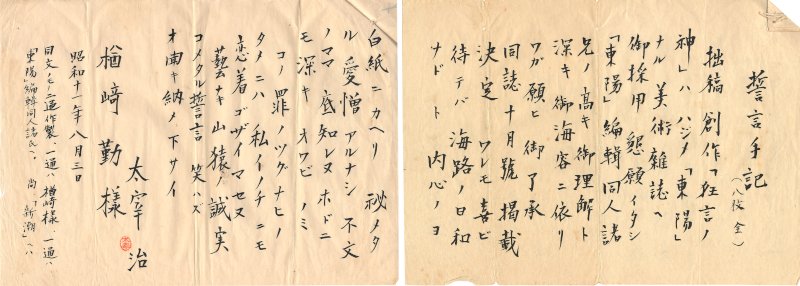 誓言手記
(八枚 全)
拙稿 創作「狂言ノ
神」ハ ハジメ「東陽」
ナル美術雜誌ヘ
御採用 懇願イタシ
「東陽」編輯同人諸
兄ノ高キ御理解ト
深キ御海容ニ依リ
ワガ願ヒ御了承
同誌十月號掲載
決定 ワレモ喜ビ
待テバ海路ノ日和
ナドト 内心ノヨ
白紙ニカヘリ 祕メタ
ル 愛憎アルナシ 不文
ノママ 底知レヌホドニ
モ 深キ オワビノミ
コノ罪ノツグナヒノ
タメニハ 私イノチニモ
恋着ゴザイマセヌ
藝ナキ山猿ノ誠実
コメタル誓言 笑ハズ
オ聞キ納メ下サイ
昭和十一年八月三日
太宰治
楢﨑勤様
同文ノモノ二通作製、一通ハ楢﨑様、一通ハ、
「東陽」編輯同人諸氏ヘ、尚、「新潮」ヘハ